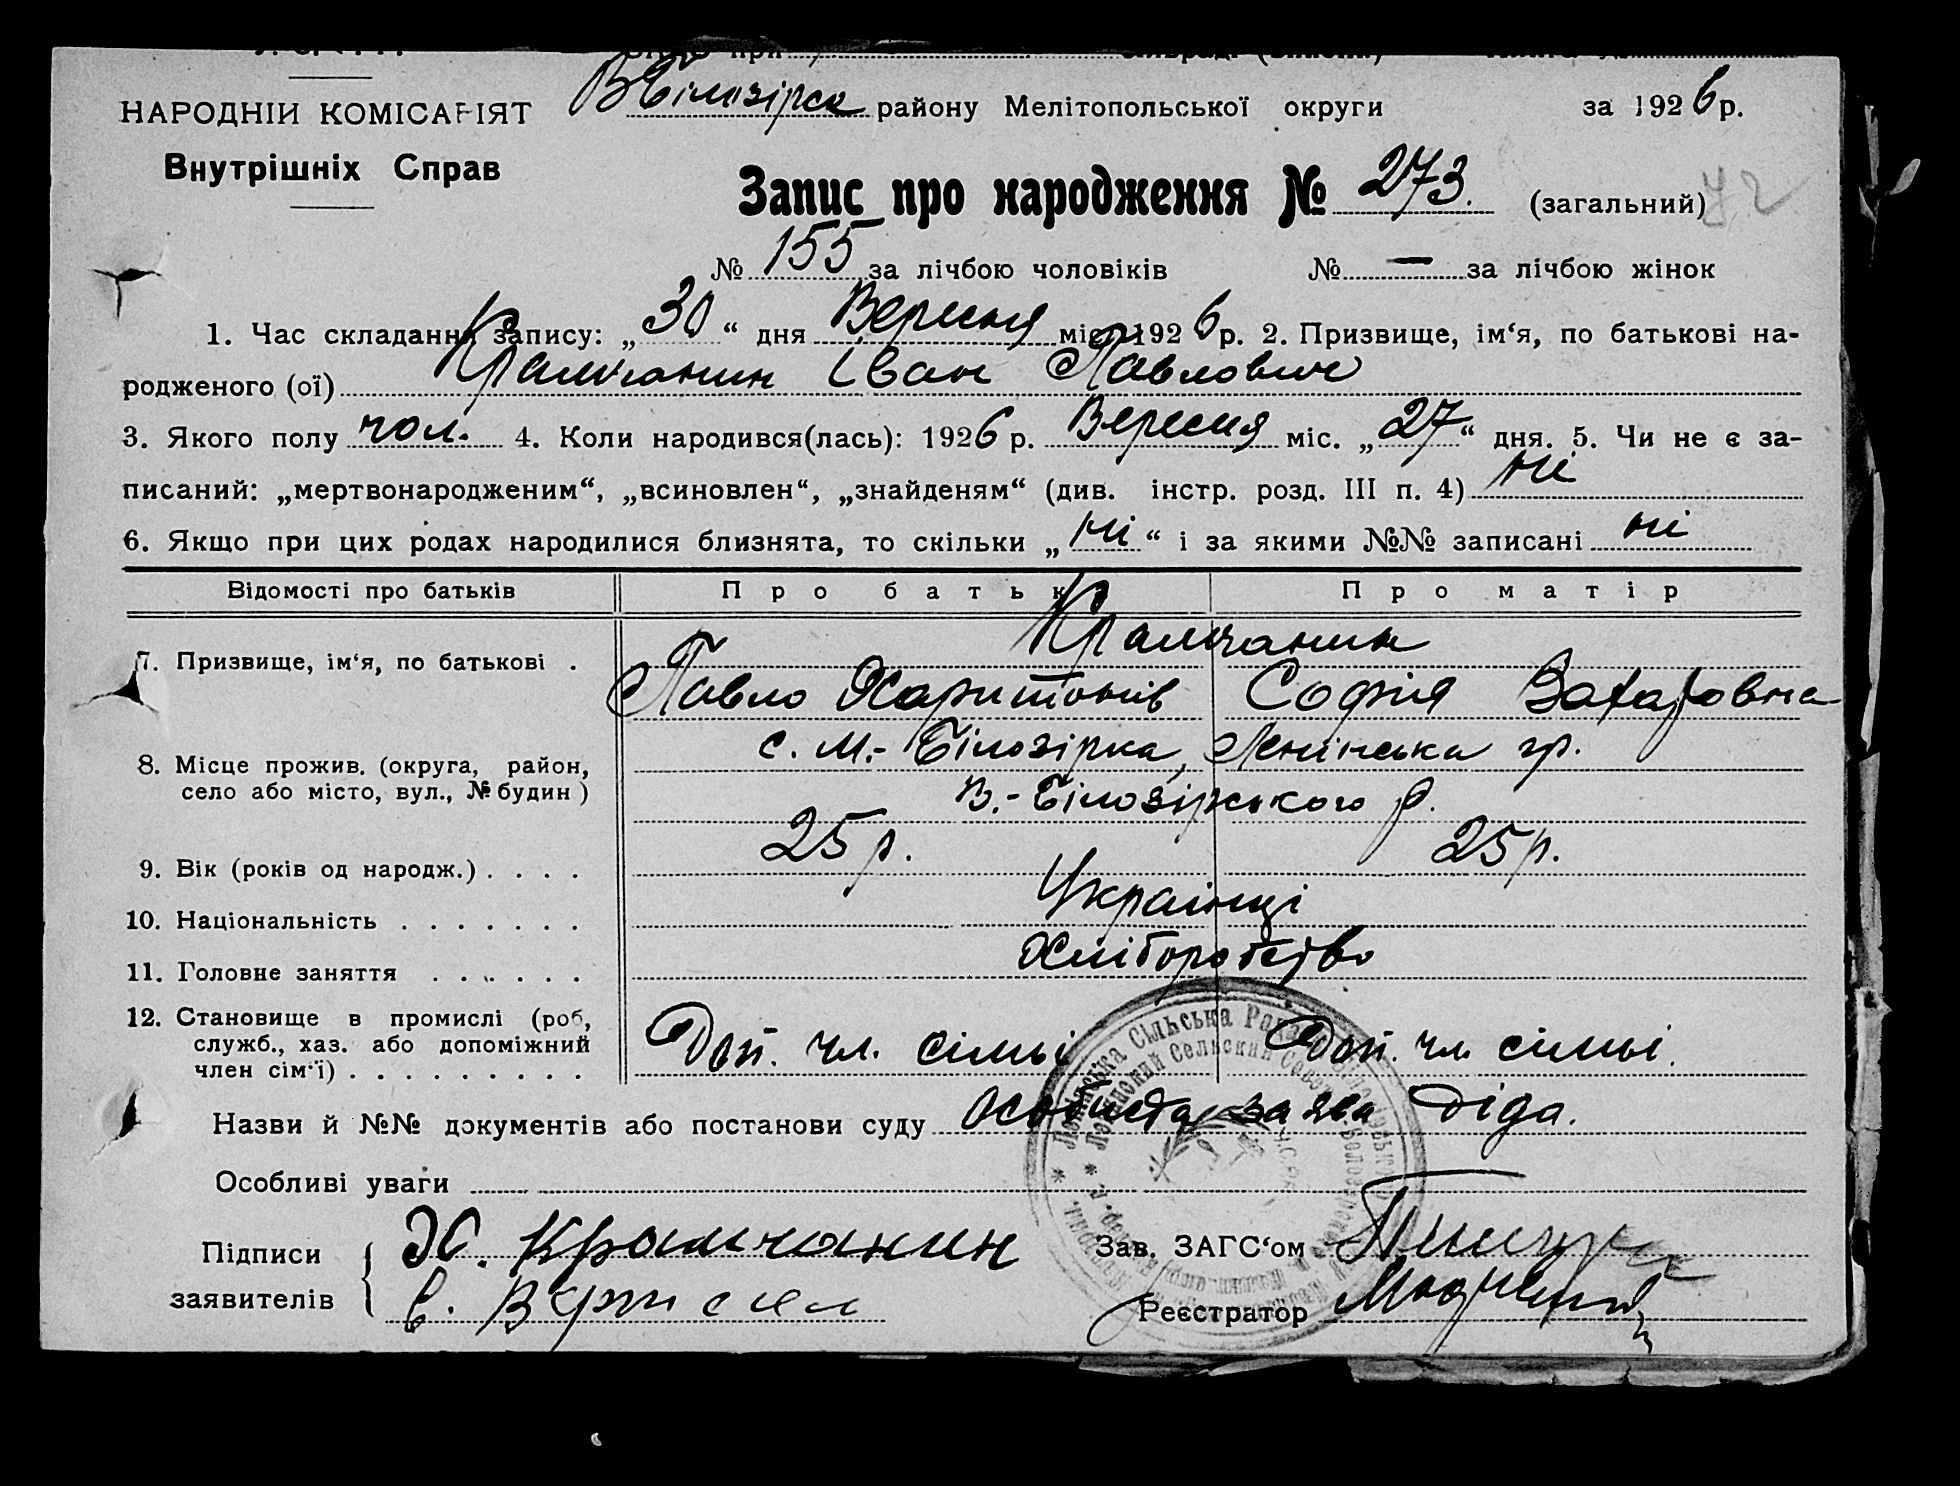 НАРОДНІЙ КОМІСАРІЯТ
Внутрішніх Справ
В Білозірск району Мелітопольської округи за 1926 р.
Запис про народження № 273. (загальний) 42
№ 155 за лічбою чоловіків № — за лічбою жінок
1. Час складання запису: „30“ дня Вересня міс. 1926 р. 2. Призвище, ім‘я, по батькові на-
родженого (ої) Крамчанин Іван Павлович
3. Якого полу чол. 4. Коли народився(лась): 1926 р. Вересня міс. „27“ дня. 5. Чи не є за-
писаний: „мертвонародженим“, „всиновлен“, „знайденям“ (див. інстр. розд. III п. 4) ні
6. Якщо при цих родах народилися близнята, то скільки „ні“ і за якими №№ записані ні
Відомості про батьків Про батьк Про матір
Крамчанин
7. Призвище, ім‘я, по батькові . Павло Харитонів Софія Захаровна
8. Місце прожив. (округа, район, с. М.-Білозірка, Ленінська гр.
село або місто, вул., № будин) В.-Білозірського р.
9. Вік (років од народж.) . . . . 25 р. 25 р.
10. Національність . . . . . . . Українці
11. Головне заняття . . . . . . Хліборобство
12. Становище в промислі (роб,
служб., хаз. або допоміжний Доп. чл. сімьі Доп. чл. сімьі.
член сім‘ї) . . . . . . . . .
Назви й №№ документів або постанови суду особиста заява Діда.
Особливі уваги
Підписи Х. Крамчанин Зав. ЗАГС‘ом
заявителів Реєстратор
Ленінська Сільська Рада
Ленинский Сельский Совет